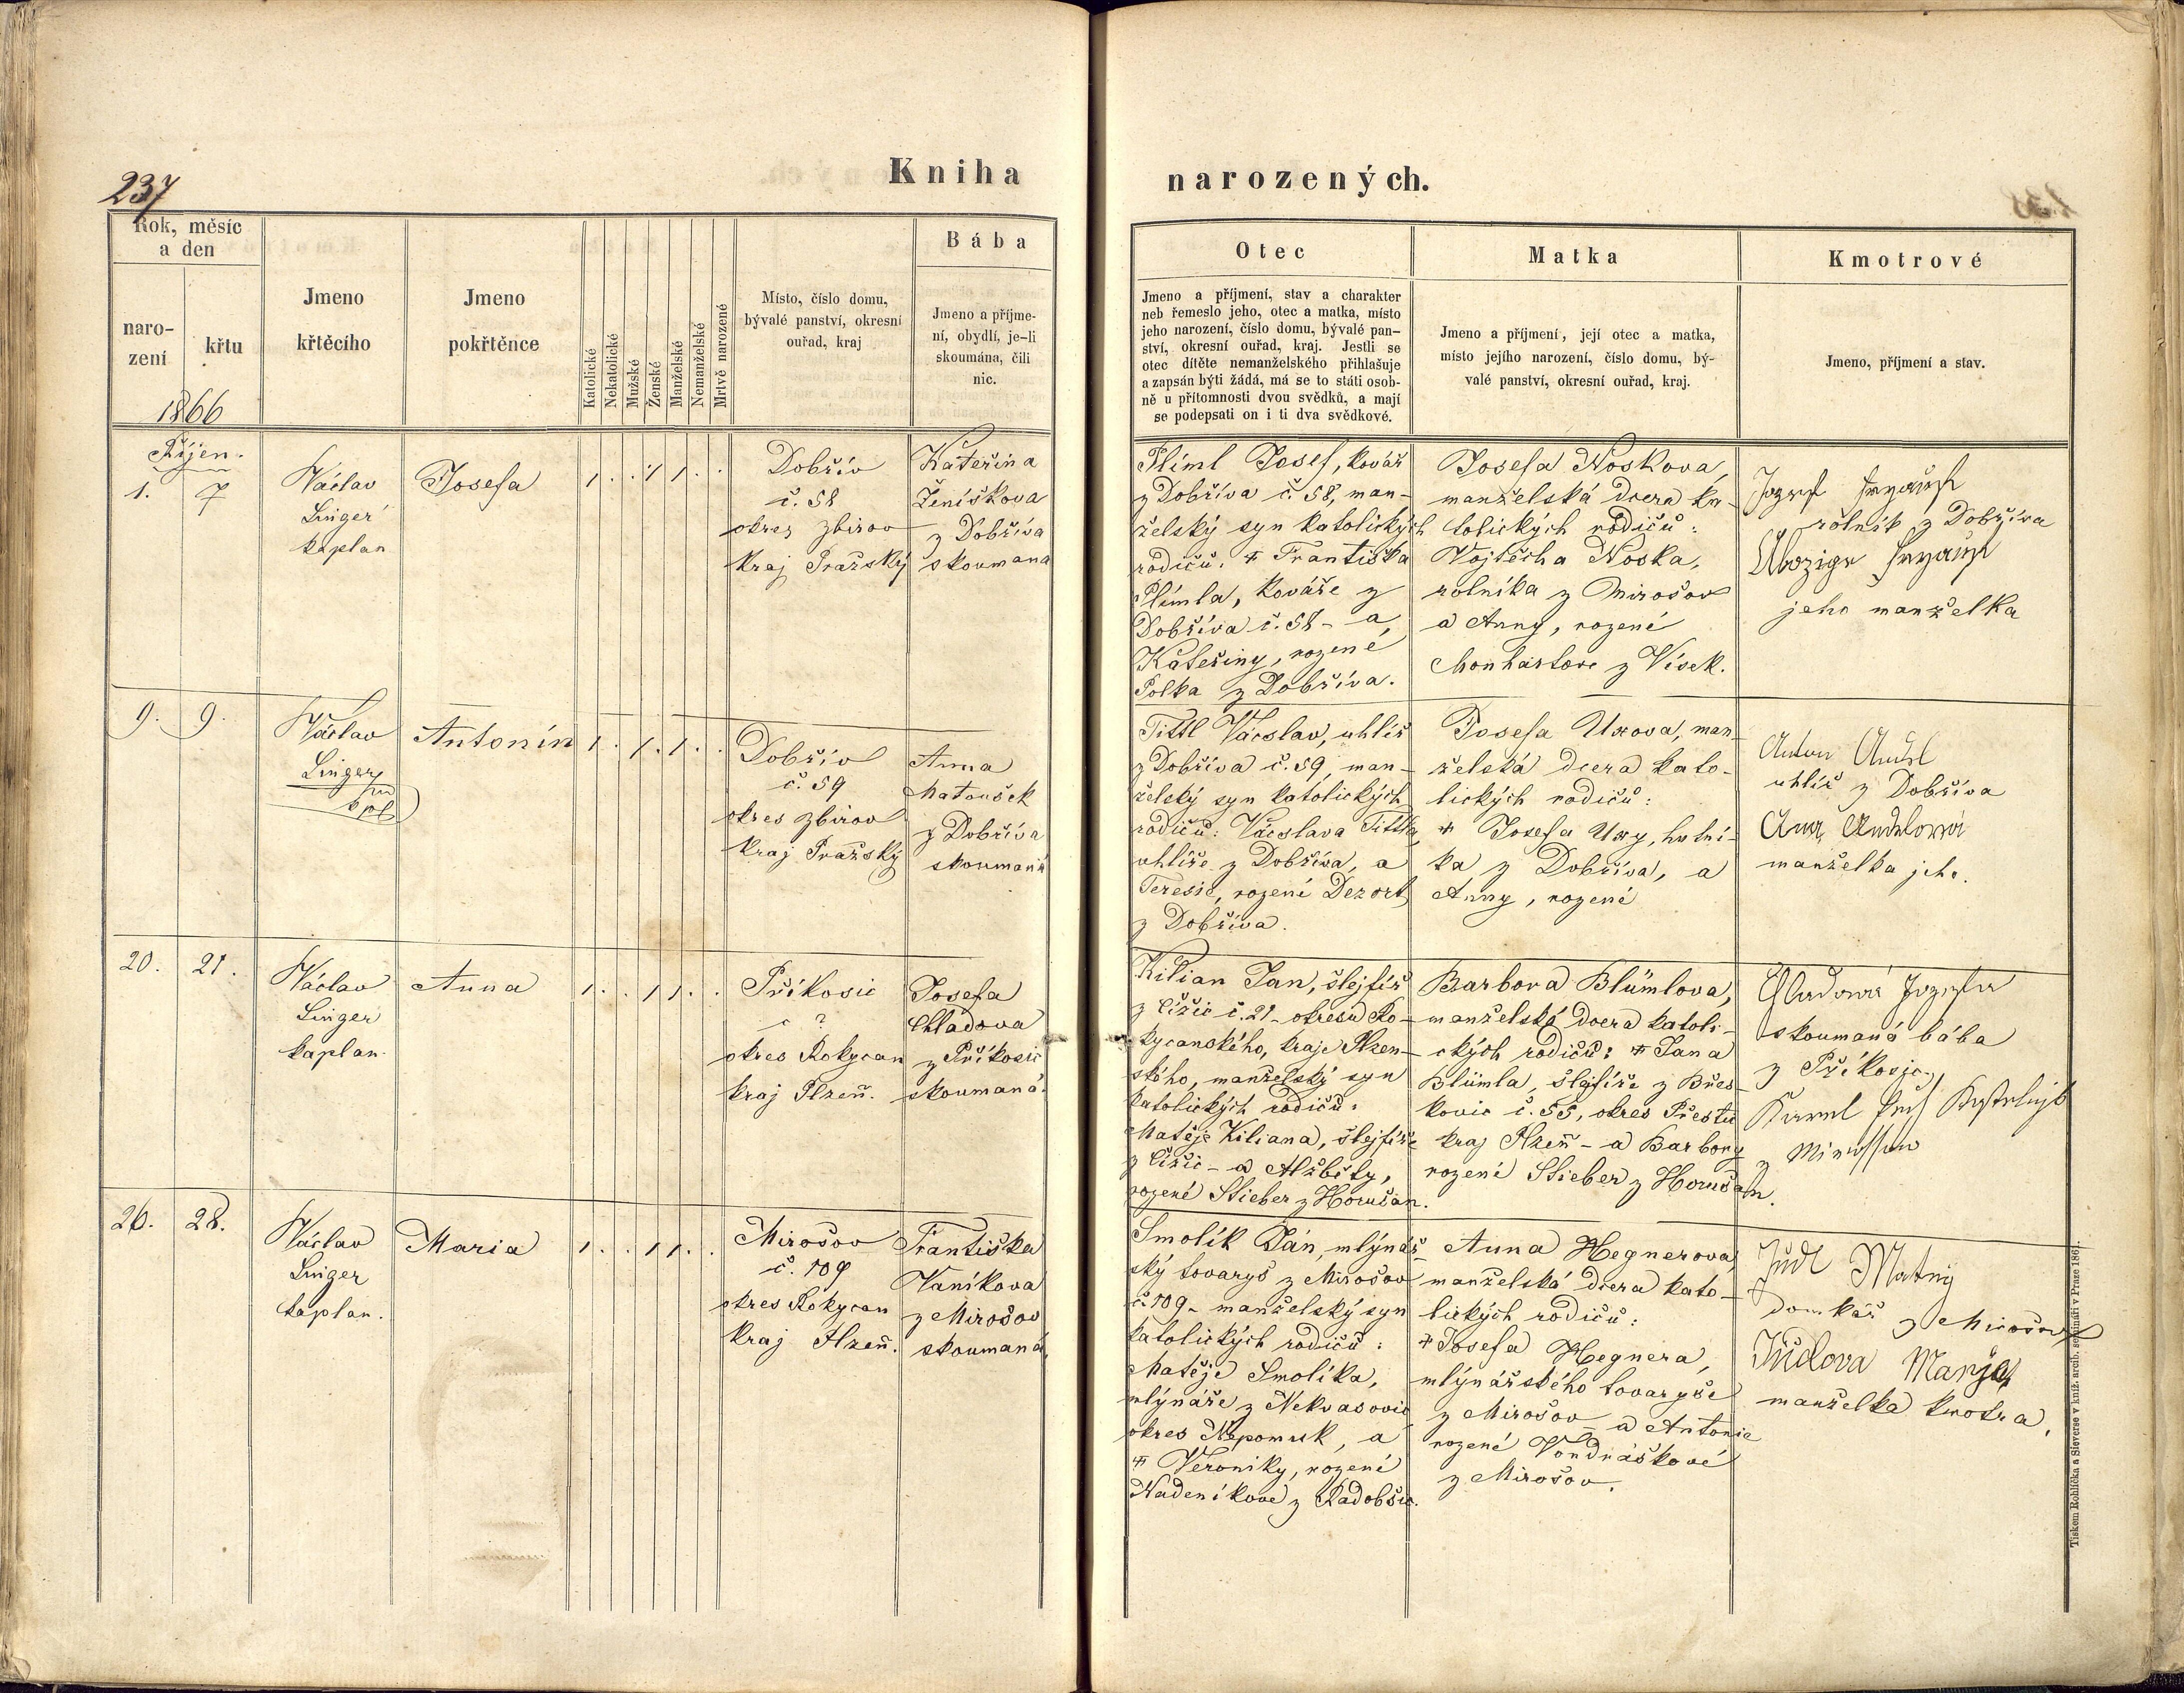 237
Kniha
narozených.
Rok, měsíc
a den
naro-
zení
křtu
1866
Jmeno
křtěcího
Jmeno
pokřtěnce
Katolické
Nekatolické
Mužské
Ženské
Manželské
Nemanželské
Mrtvě narozené
Místo, číslo domu,
bývalé panství, okresní
ouřad, kraj
Bába
Jmeno a příjme-
ní, obydlí, je-li
skoumána, čili
nic.
Otec
Jmeno a příjmení, stav a charakter
neb řemeslo jeho, otec a matka, místo
jeho narození, číslo domu, bývalé pan-
ství, okresní ouřad, kraj. Jestli se
otec dítěte nemanželského přihlašuje
a zapsán býti žádá, má se to státi osob-
ně u přítomnosti dvou svědků, a mají
se podepsati on i ti dva svědkové.
Matka
Jmeno a příjmení, její otec a matka,
místo jejího narození, číslo domu, bý-
valé panství, okresní ouřad, kraj.
Kmotrové
Jmeno, příjmení a stav.
Říjen.
1. 7
Václav
Linger
kaplan
Josefa
1 . . 1 1 . .
Dobřív
č. 58
okres Zbirov
Kraj Pražský
Kateřina
Ženíškova
z Dobříva
skoumana
Plíml Josef, kovář
z Dobříva č. 58, man-
želský syn katolických
rodičů: † Františka
Plímla, kováře z
Dobříva č. 58 - a
Kateřiny, rozené
Polka z Dobříva.
Josefa Noskova,
manželská dcera ka-
tolických rodičů:
Vojtěcha Noska,
rolníka z Mirošov
a Anny, rozené
Monhartove z Vísek.
Jozef
rolník z Dobříva
jeho manželka
9. 9.
Václav
Linger
kpl
Antonín
1 . 1 . 1 . .
Dobřív
č. 59
okres Zbirov
kraj Pražský
Anna
Matoušek
z Dobříva
skoumaná
Tittl Václav, uhlíř
z Dobříva č. 59, man-
želský syn katolických
rodičů: Václava Tittla,
uhlíře z Dobříva, a
Teresie, rozené Dezort
z Dobříva.
Josefa Uxova, man-
želská dcera kato-
lických rodičů:
† Josefa Uxy, hutní-
ka z Dobříva, a
Anny, rozené
Anton
uhlíř z Dobříva
manželka jeho.
20. 21.
Václav
Linger
kaplan.
Anna
1 . . 1 1 . .
Příkosic
č ?
okres Rokycan
kraj Plzeň.
Josefa
Chladova
z Příkosic
skoumaná.
Kilian Jan, šlejfíř
z Čížic č. 21 - okresu Ro-
kycanského, kraje Plzen-
ského, manželský syn
katolických rodičů:
Matěje Kiliana, šlejfíře
z Čížic - a Alžběty,
rozené Stieber z Horušan.
Barbora Blümlova,
manželská dcera katoli-
ckých rodičů: † Jana
Blümla, šlejfíře z Břes-
kovic č. 55, okres Přestic
kraj Plzeň - a Barbory
rozené Stieber z Horušan.
Chladová Jozefa
skoumaná bába
z Příkosic,
z
26. 28.
Václav
Linger
kaplan.
Maria
1 . . 1 1 . .
Mirošov
č. 109
okres Rokycan
kraj Plzeň.
Františka
Vaníkova
z Mirošov
skoumaná.
Smolík Ján, mlynář-
ský tovaryš z Mirošov
č. 109 - manželský syn
katolických rodičů:
Matěje Smolíka,
mlynáře z Nekvasovic
okres Nepomuk, a
† Veroniky, rozené
Nadeníkove z Kadobšic.
Anna Hegnerova
manželská dcera kato-
lických rodičů:
† Josefa Hegnera,
mlýnářského tovaryše
z Mirošov - a Antonie
rozené Vondráškové
z Mirošov.
Jüdl Matny
domkář z Mirošov
Jüdlova Marija
manželka kmotra.
Tiskem Rohlíčka a Sieverse v kníž. arcib. semináři v Praze 1861.